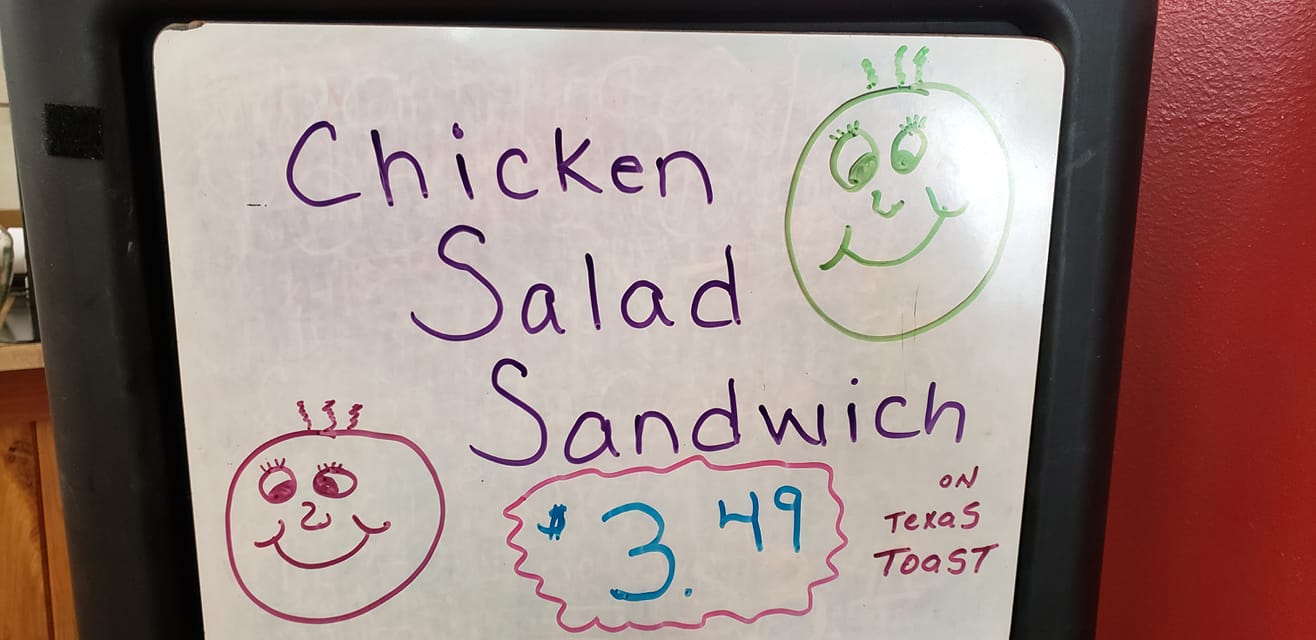 Chicken
Salad
Sandwich
ON
Texas
Toast
$3.49